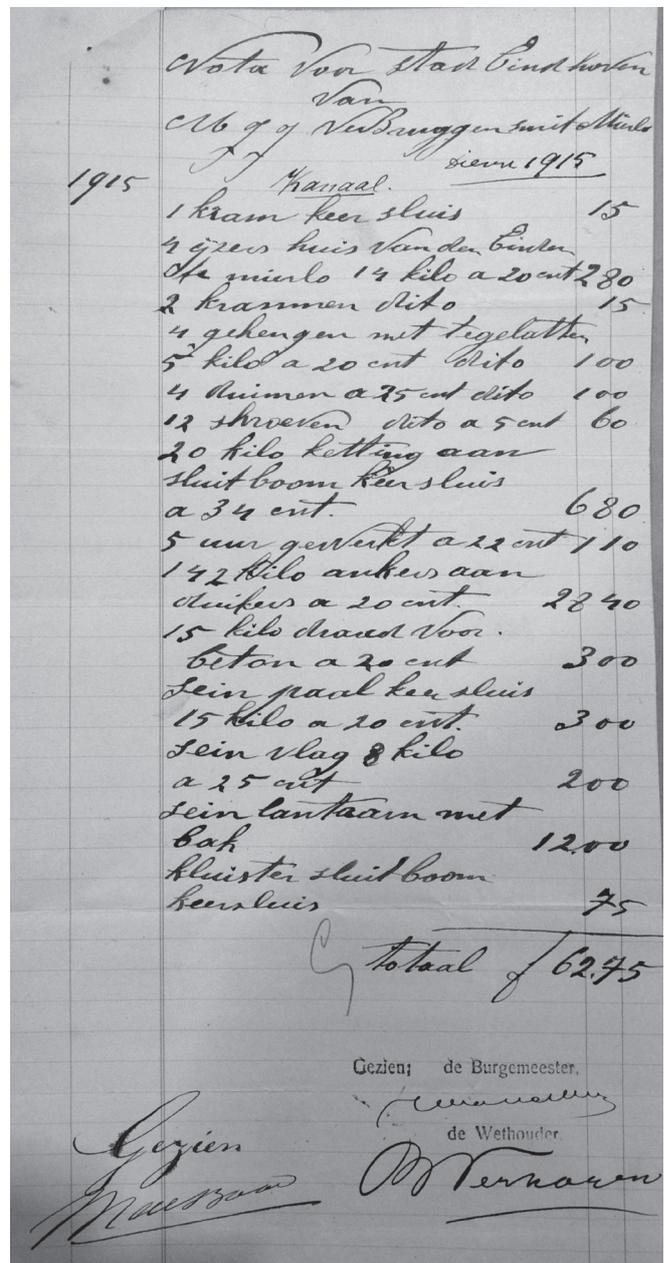 Nota voor stad Eindhoven
van
VerBruggen smit Mierlo
1915 Kanaal. 1915
1 kram keer sluis 15
4 ijzers huis van den Einden
te mierlo 14 kilo a 20 cnt 280
2 krammen dito 15
4 gehengen met tegelatten
5 kilo a 20 cnt dito 100
4 duimen a 25 cnt dito 100
12 shroeven dito a 5 cnt 60
20 kilo ketting aan
sluitboom keersluis
a 34 cnt. 680
5 uur gewerkt a 22 cnt 110
142 kilo ankers aan
duikers a 20 cnt. 2840
15 kilo draad voor.
beton a 20 cnt 300
sein paal keersluis
15 kilo a 20 cnt. 300
sein vlag 8 kilo
a 25 cnt 200
sein lantaarn met
bak 12.00
kluister sluitboom
keersluis 75
totaal f 62.75
Gezien; de Burgemeester,
de Wethouder,
Gezien
Verhoven